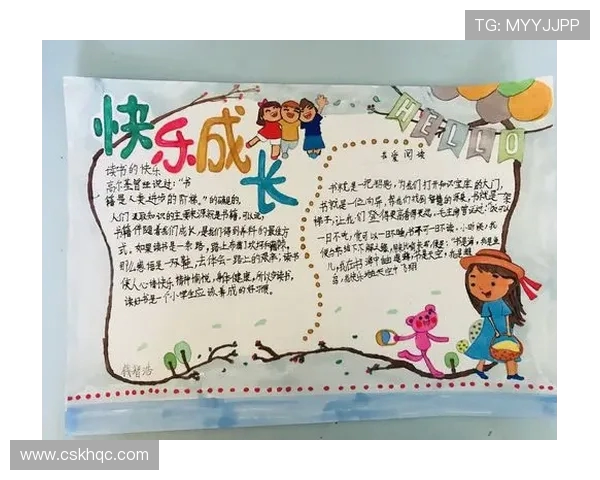 TG: MYYJJPP
快乐成长
HELLO
读书的快乐
高尔基曾经说过："书
籍是人类进步的阶梯。"的确是的,
人们汲取知识的主要来源就是书籍,可以说,
书籍伴随着我们成长,是我们得到养料的最佳方
式。如果读书是一条路,路上布满了坎坷和崎岖,
那么感悟是一双鞋,去体会一路上的艰辛,读书
使人心情快乐,精神愉悦,身体健康,所以多读书,
读好书是一个小学生应该养成的好习惯。
书爱阅读
书就是一把钥匙,为我们打开知识宝库的大门,
书就是一位向导,带我们找到智慧的源泉,书就是一架
梯子,让我们登得更高看得更远,毛主席曾说过:"饭可以
一日不吃,觉可以一日不睡,书不可一日不读,小时候,我
钱智浩
www.cskhqc.com